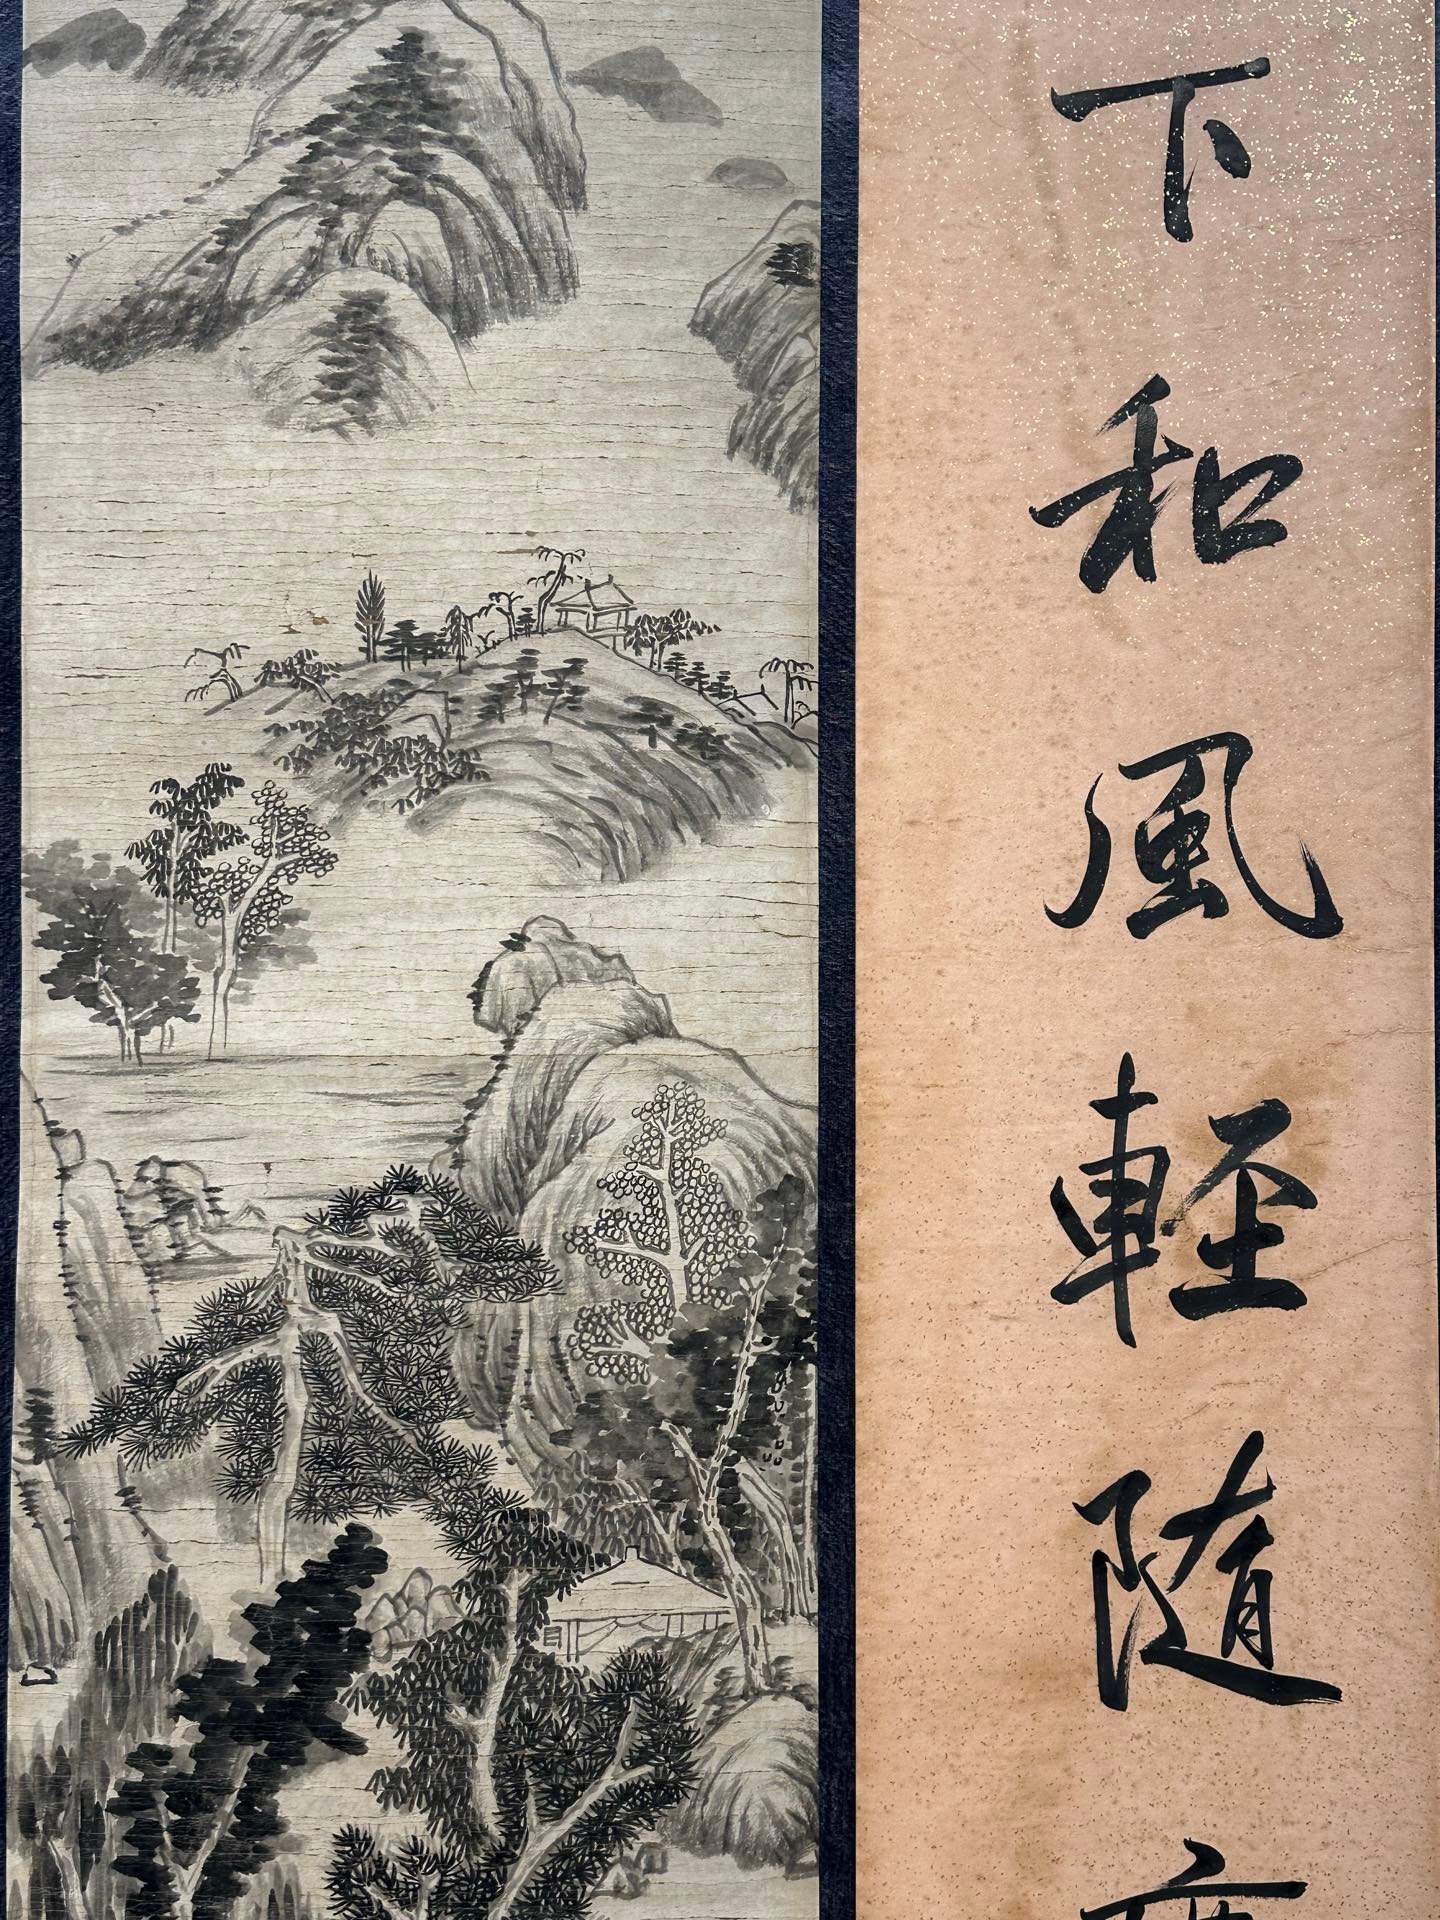 下和風輕随